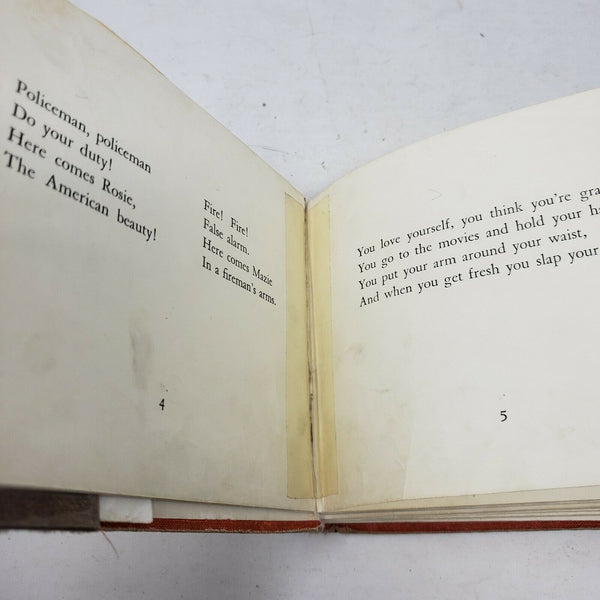 Policeman, policeman
Do your duty!
Here comes Rosie,
The American beauty!
Fire! Fire!
False alarm.
Here comes Mazie
In a fireman's arms.
4
You love yourself, you think you're
You go to the movies and hold your
You put your arm around your waist,
And when you get fresh you slap your
5